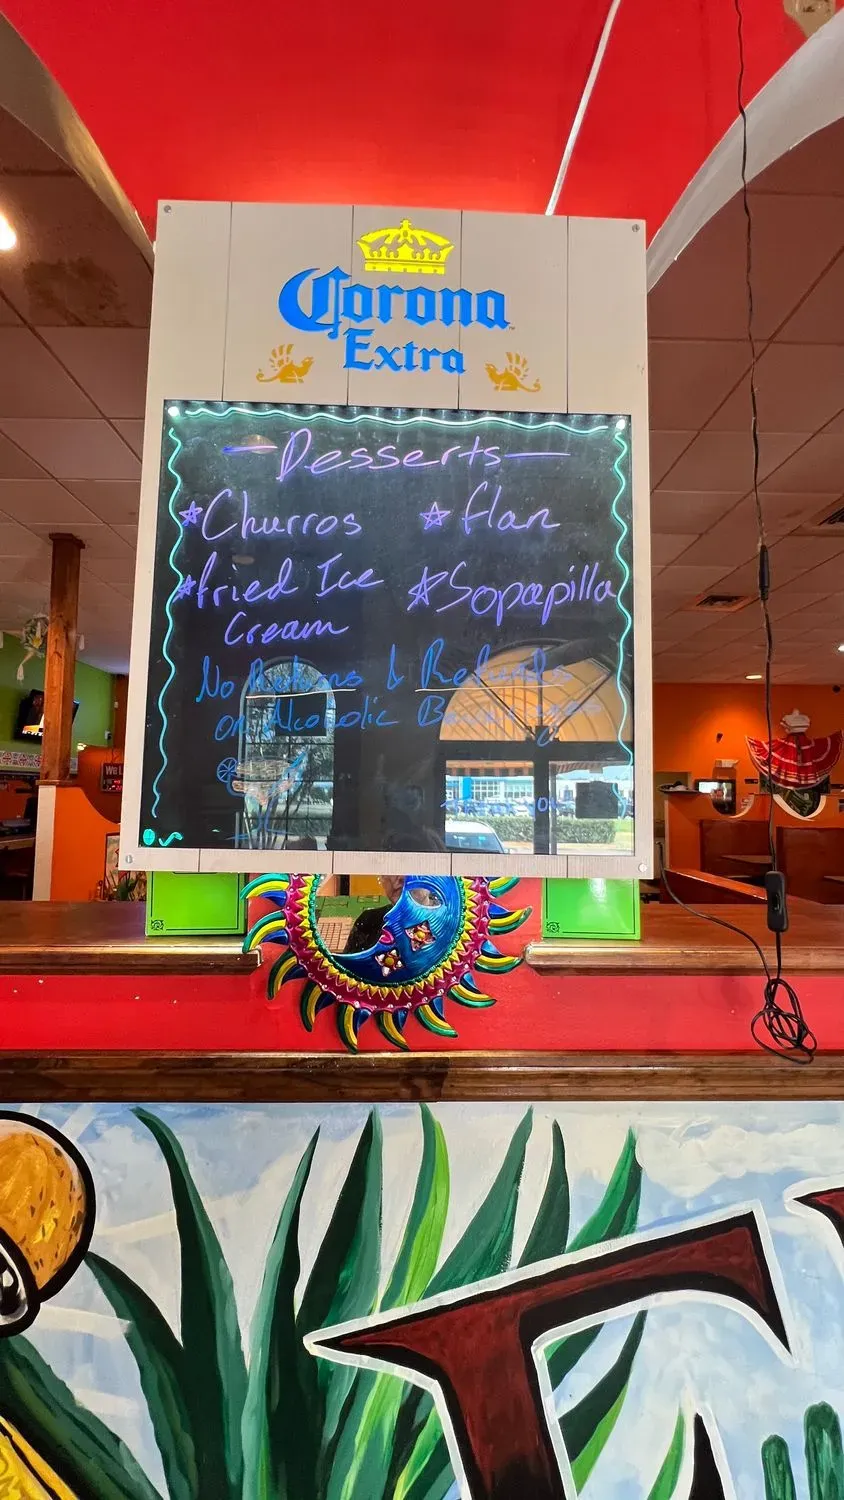 Corona
Extra
— Desserts —
☆ Churros ☆ flan
☆ fried Ice ☆ Sopapilla
Cream
No Returns & Refunds
on Alcoholic Beverages